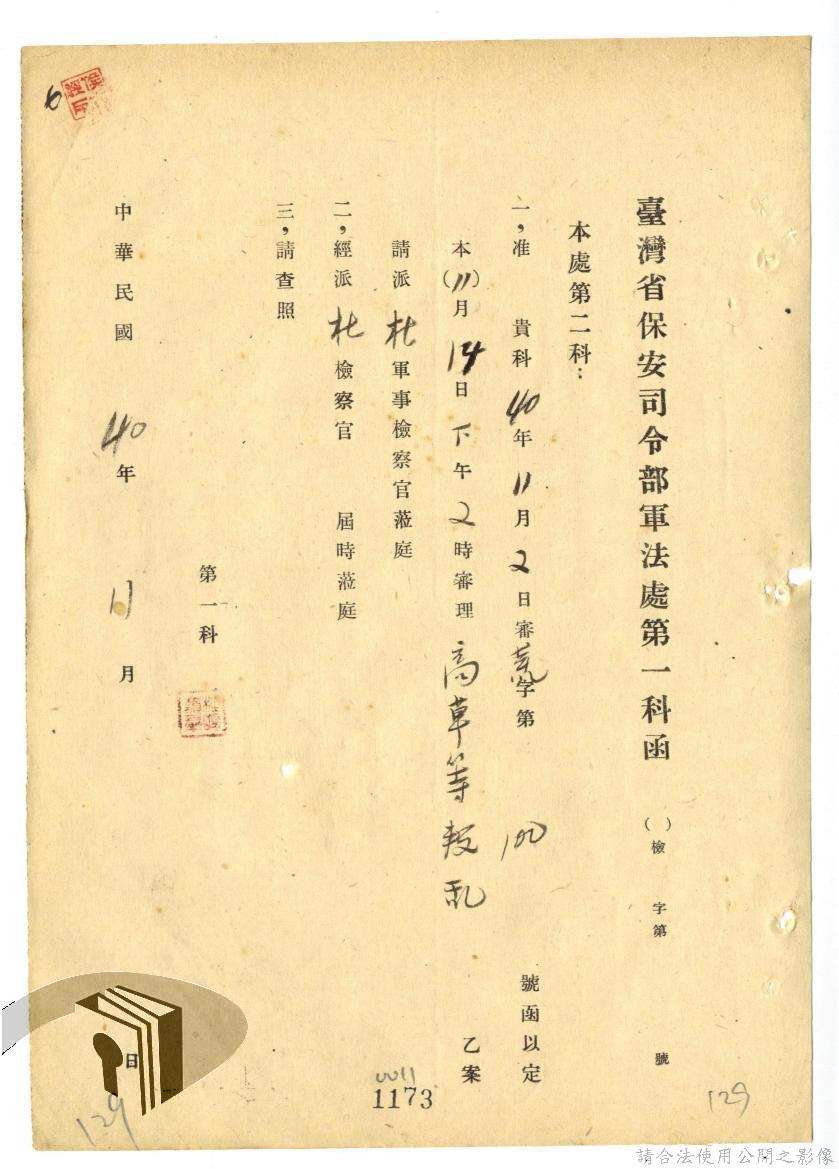 臺灣省保安司令部軍法處第一科函 ( )檢 字第 號
本處第二科：
一，准 貴科40年11月2日審 字第 100 號函以定
本(11)月14日下午2時審理高草等叛乱 乙案
請派杜軍事檢察官蒞庭
二，經派杜檢察官 屆時蒞庭
三，請查照
第一科
中華民國 40年 11月 日
6
0011
1173
129
129
請合法使用公開之影像